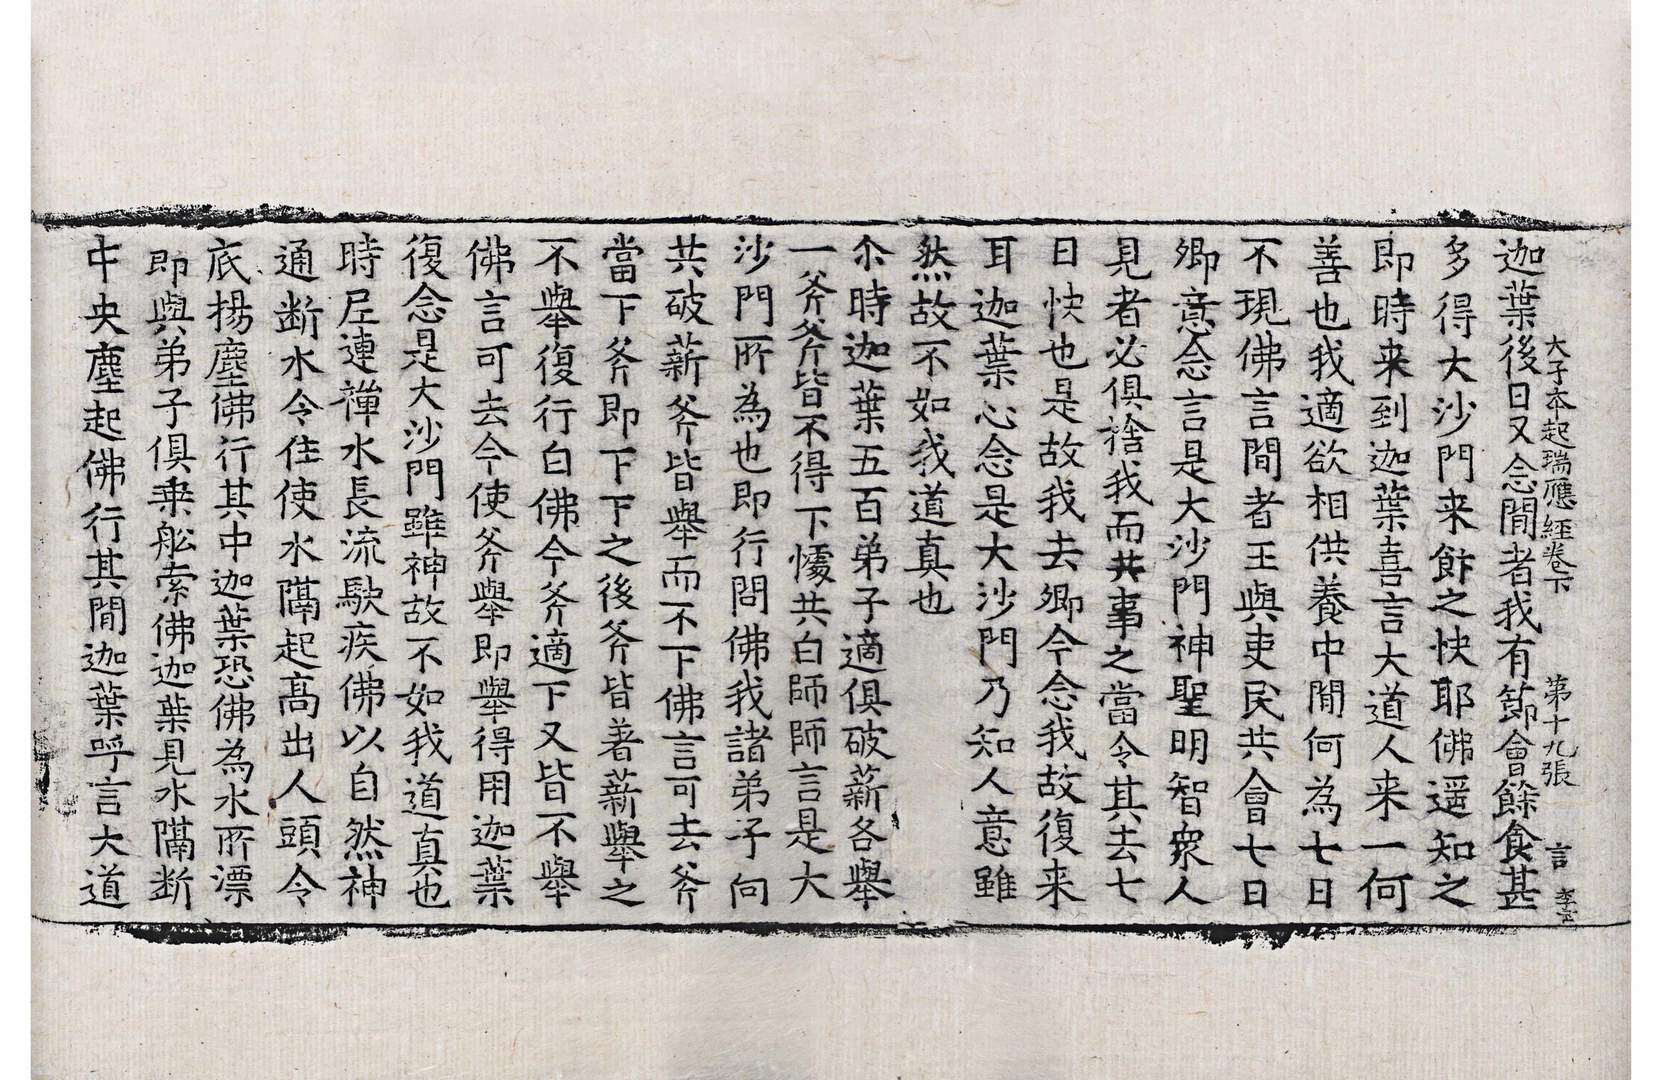 大子本起瑞應經卷下 第十九張 言 李
迦葉後日又念閒者我有節會餘食甚
多得大沙門来餘之快耶佛遥知之
即時来到迦葉喜言大道人来一何
善也我適欲相供養中閒何為七日
不現佛言閒者王與吏民共會七日
卿意念言是大沙門神聖明智衆人
見者必俱捨我而共事之當令其去七
日快也是故我去卿今念我故復来
耳迦葉心念是大沙門乃知人意雖
然故不如我道真也
尒時迦葉五百弟子適俱破薪各舉
一斧斧皆不得下懅共白師師言是大
沙門所為也即行問佛我諸弟子向
共破薪斧皆舉而不下佛言可去斧
當下斧即下下之後斧皆著薪舉之
不舉復行白佛今斧適下又皆不舉
佛言可去今使斧舉即舉得用迦葉
復念是大沙門雖神故不如我道真也
時尼連禪水長流駃疾佛以自然神
通断水令住使水隔起高出人頭令
底揚塵佛行其中迦葉恐佛為水所漂
即與弟子俱乗舩索佛迦葉見水隔断
中央塵起佛行其閒迦葉呼言大道